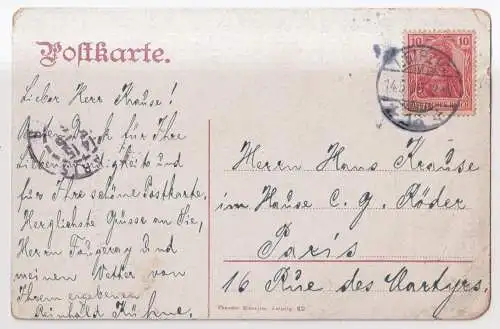 Postkarte.
Lieber Herr Krause!
Vielen Dank für Ihre
Liebenswürdigkeit und
für Ihre schöne Postkarte.
Herzlichste Grüsse an Sie,
Herrn Fougeray und
meinen Vetter von
Ihrem ergebenen
Reinhold Kühne.
10 10
LEIPZIG
14.
PARIS
Herrn Hans Krause
im Hause C. G. Röder
Paris
16 Rue des Martyrs.
Leipzig